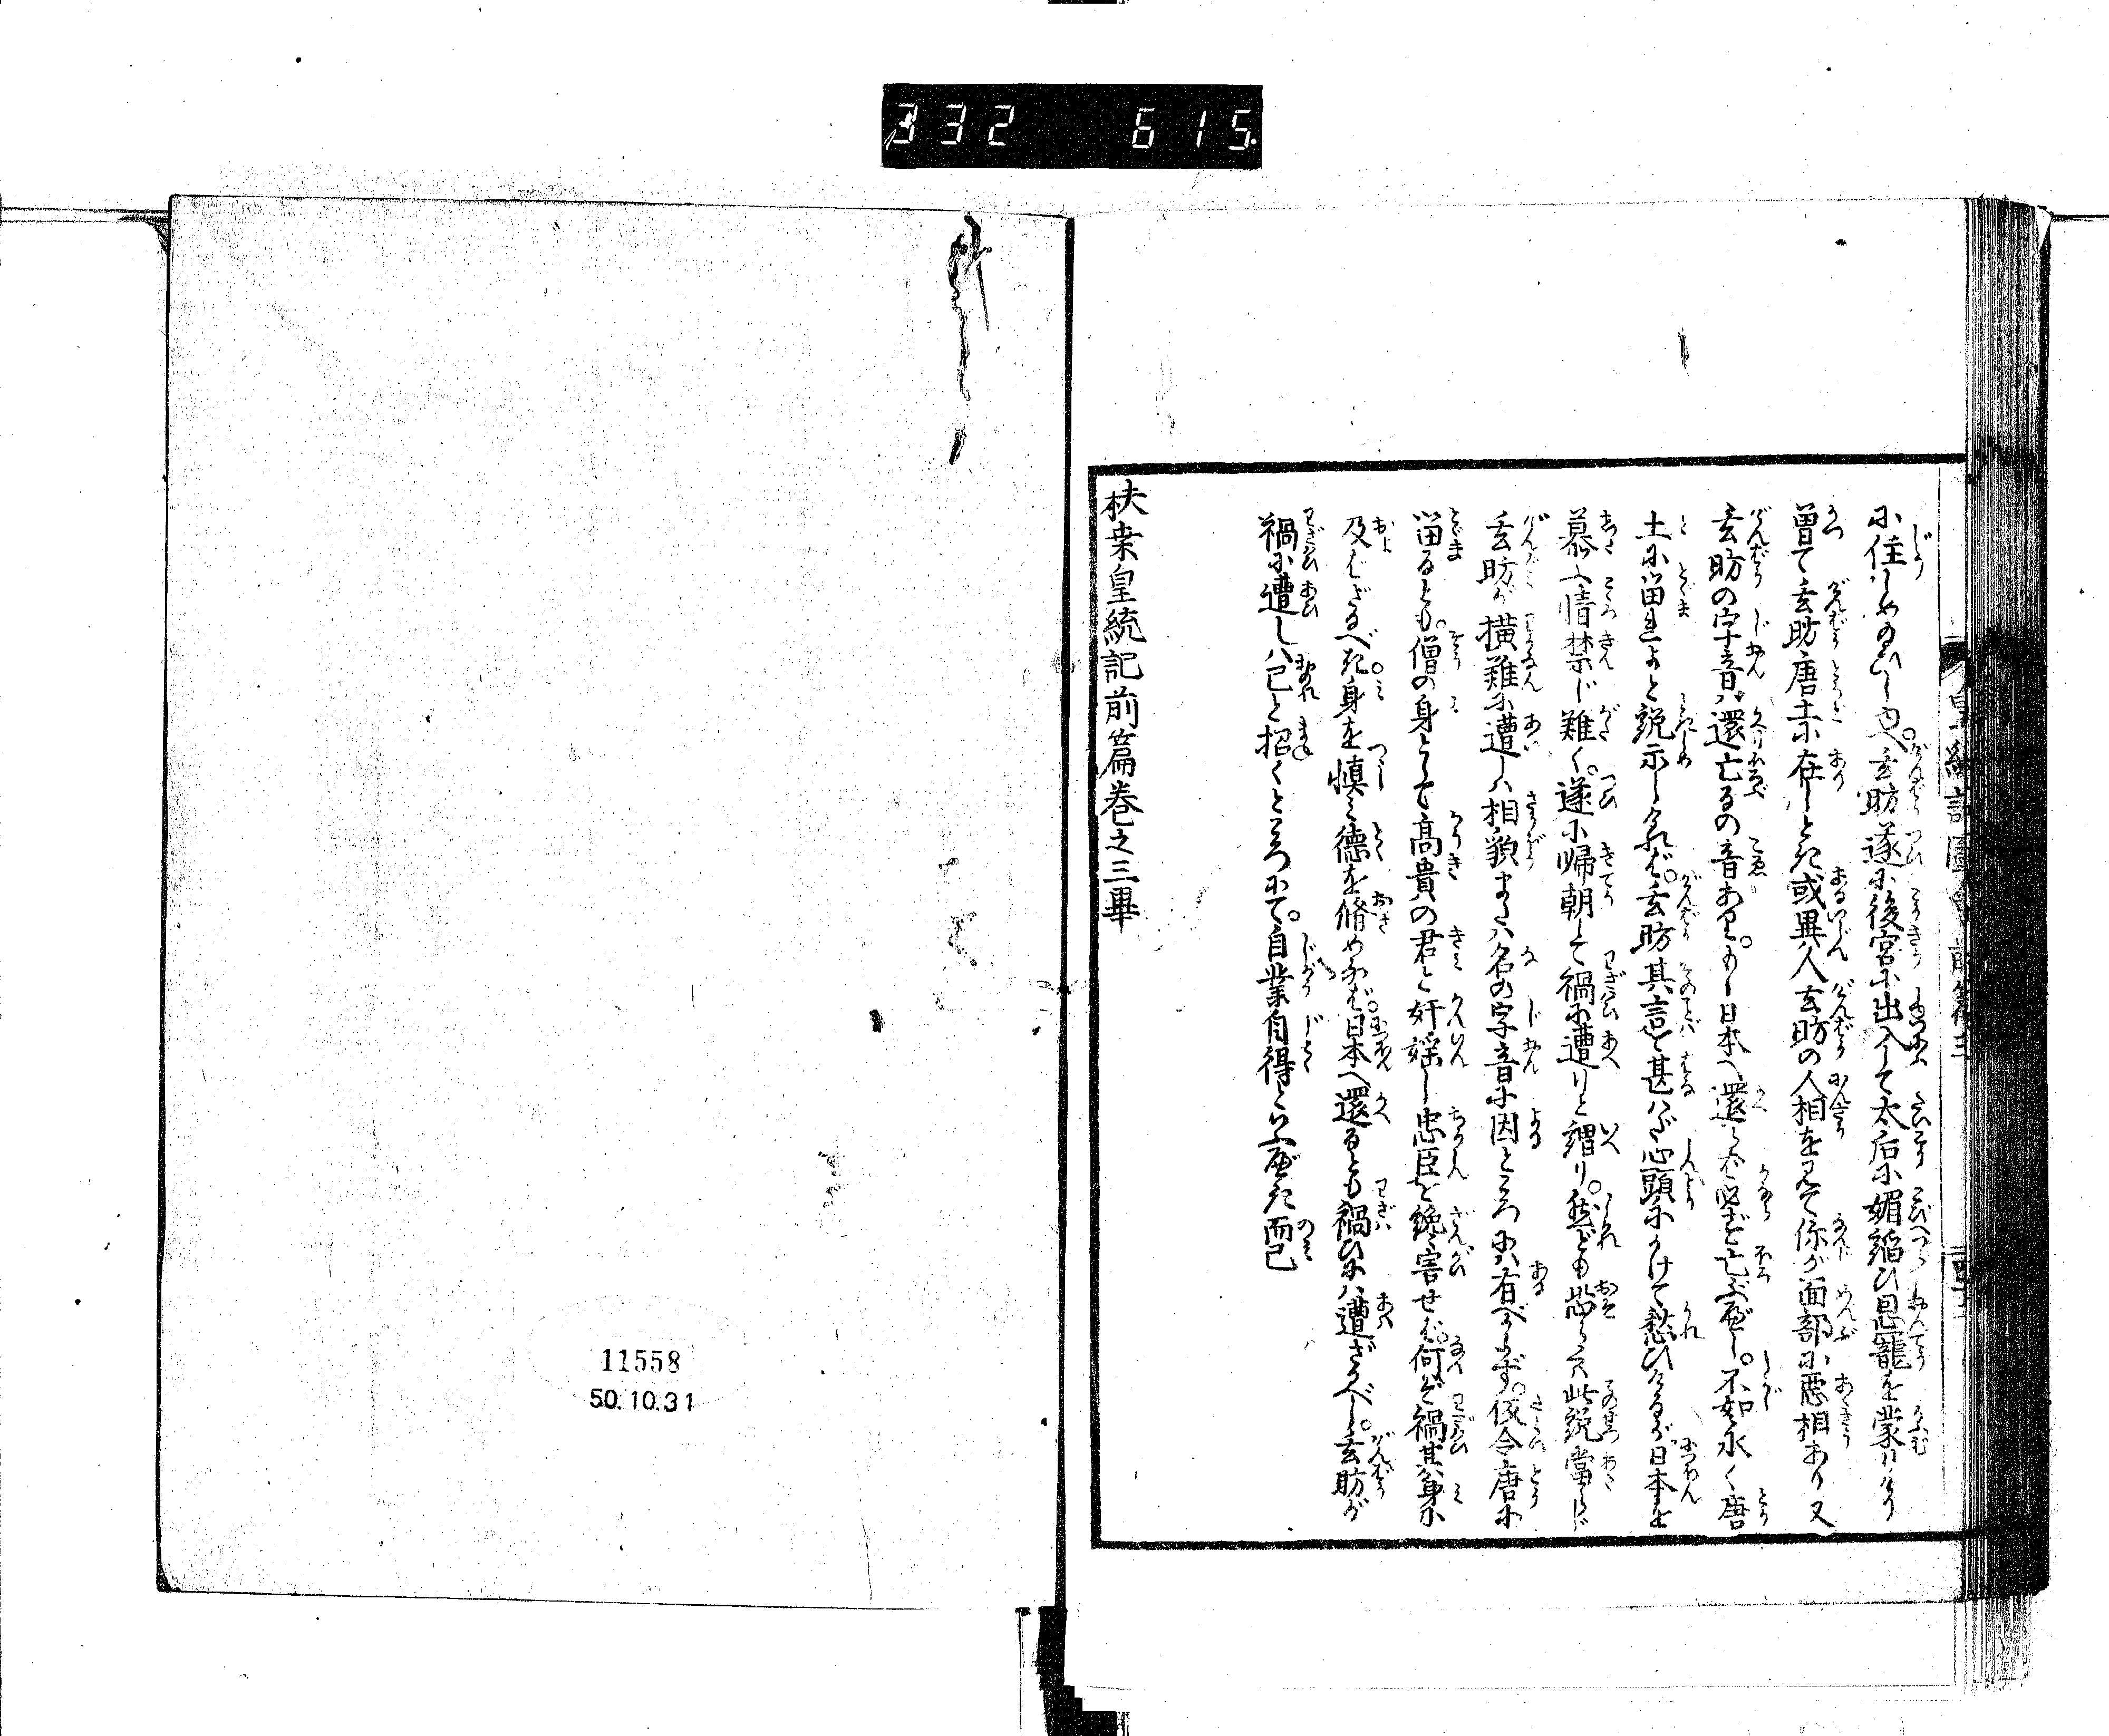 332 615
に住しめ給ひしかば。玄昉遂に後宮に出入して太后に媚諂ひ恩寵を蒙りけり
曽て玄昉唐土に在しとき或異人玄昉の人相を見て你が面部に悪相あり又
玄昉の字音ハ還亡るの音あり。もし日本へ還らバ必ず亡ぶべし。不如永く唐
土に留れよと説示しけれバ。玄昉其言を甚ハだ心頭にかけて愁ひけるが日本を
慕ふ情禁じ難く。遂に帰朝して禍に遭りと謂り。然ども恐らくハ此説當らじ
玄昉が横難に遭しハ相貌または名の字音に因ところにハ有べからず。仮令唐に
留るとも。僧の身として高貴の君と奸婬し忠臣を讒害せバ。何ぞ禍其身に
及バざるべき。身を慎ミ徳を脩めなバ。日本へ還るとも禍ひにハ遭ざるべし。玄昉が
禍に遭しハ己と招くところにて。自業自得といふべき而已
扶桒皇統記前篇巻之三畢
皇統記圖會前篇三
11558
50.10.31